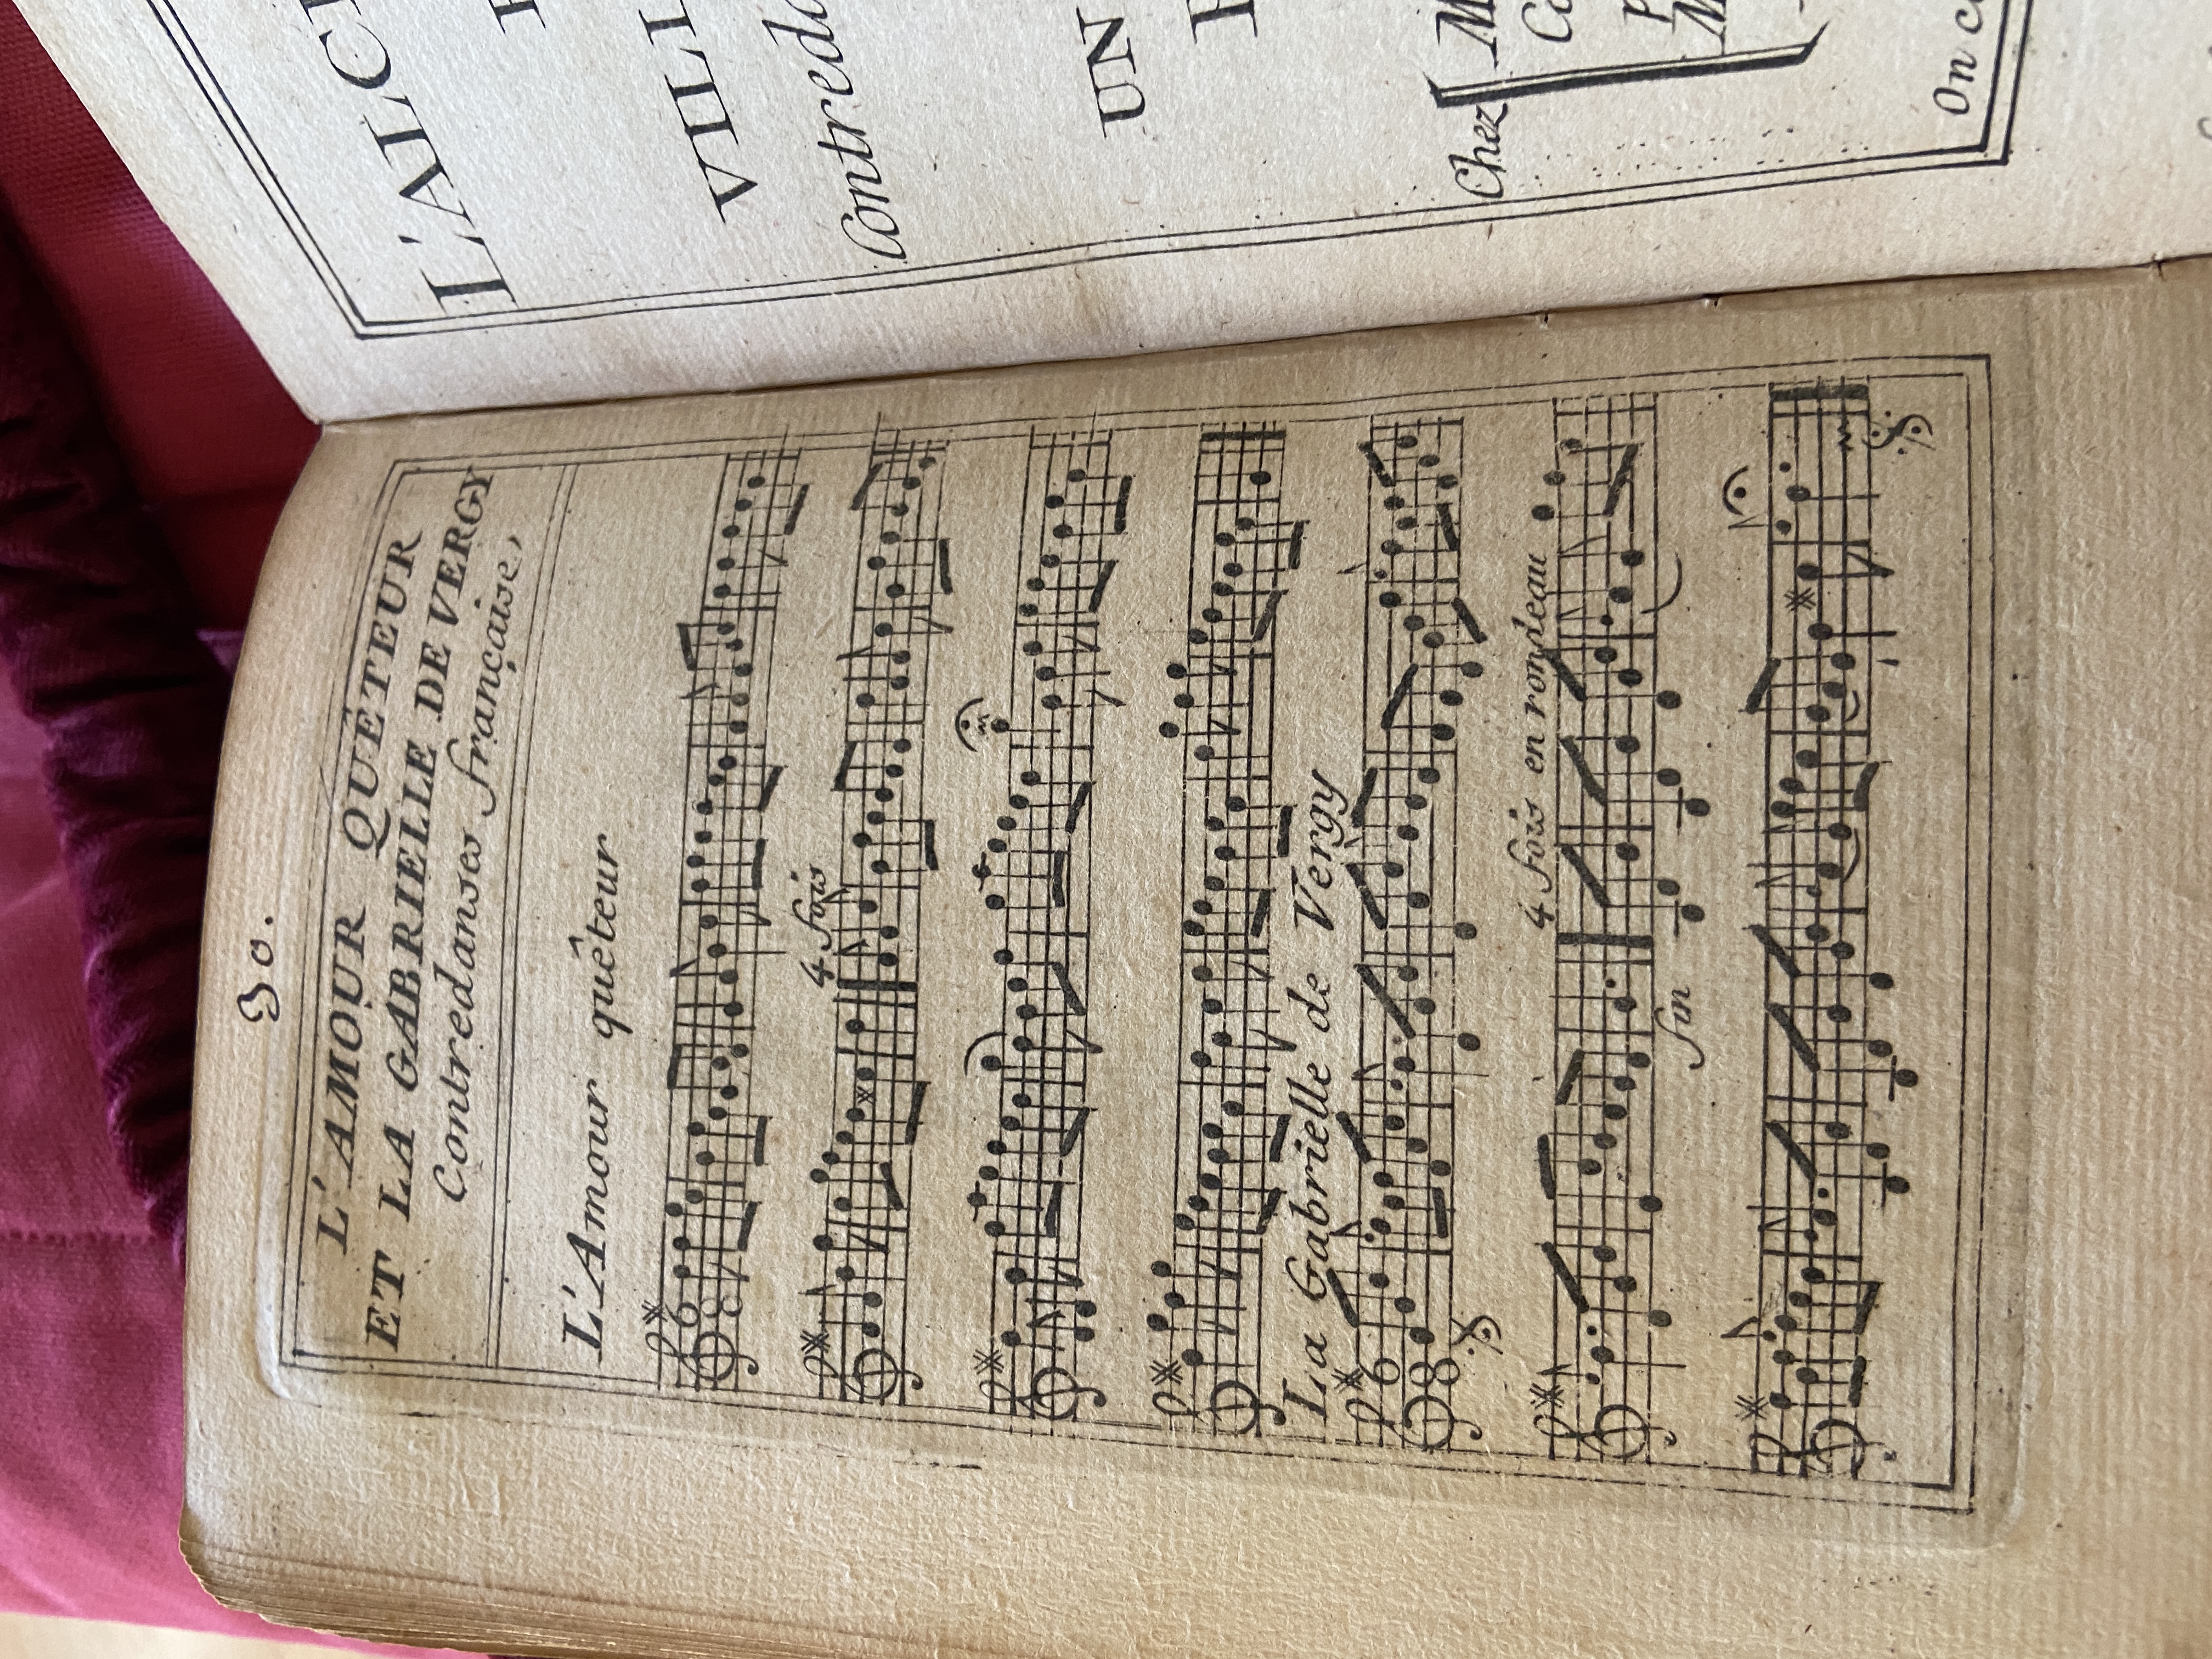 30.
L'AMOUR QUÊTEUR
ET LA GABRIELLE DE VERGY
Contredanses française,
L'Amour quêteur
6
8
4 fois
La Gabrielle de Vergy
6
8
4 fois en rondeau
fin
L'ALC
VILL
Contreda
UN
Chez
M
Ca
P
M
On c